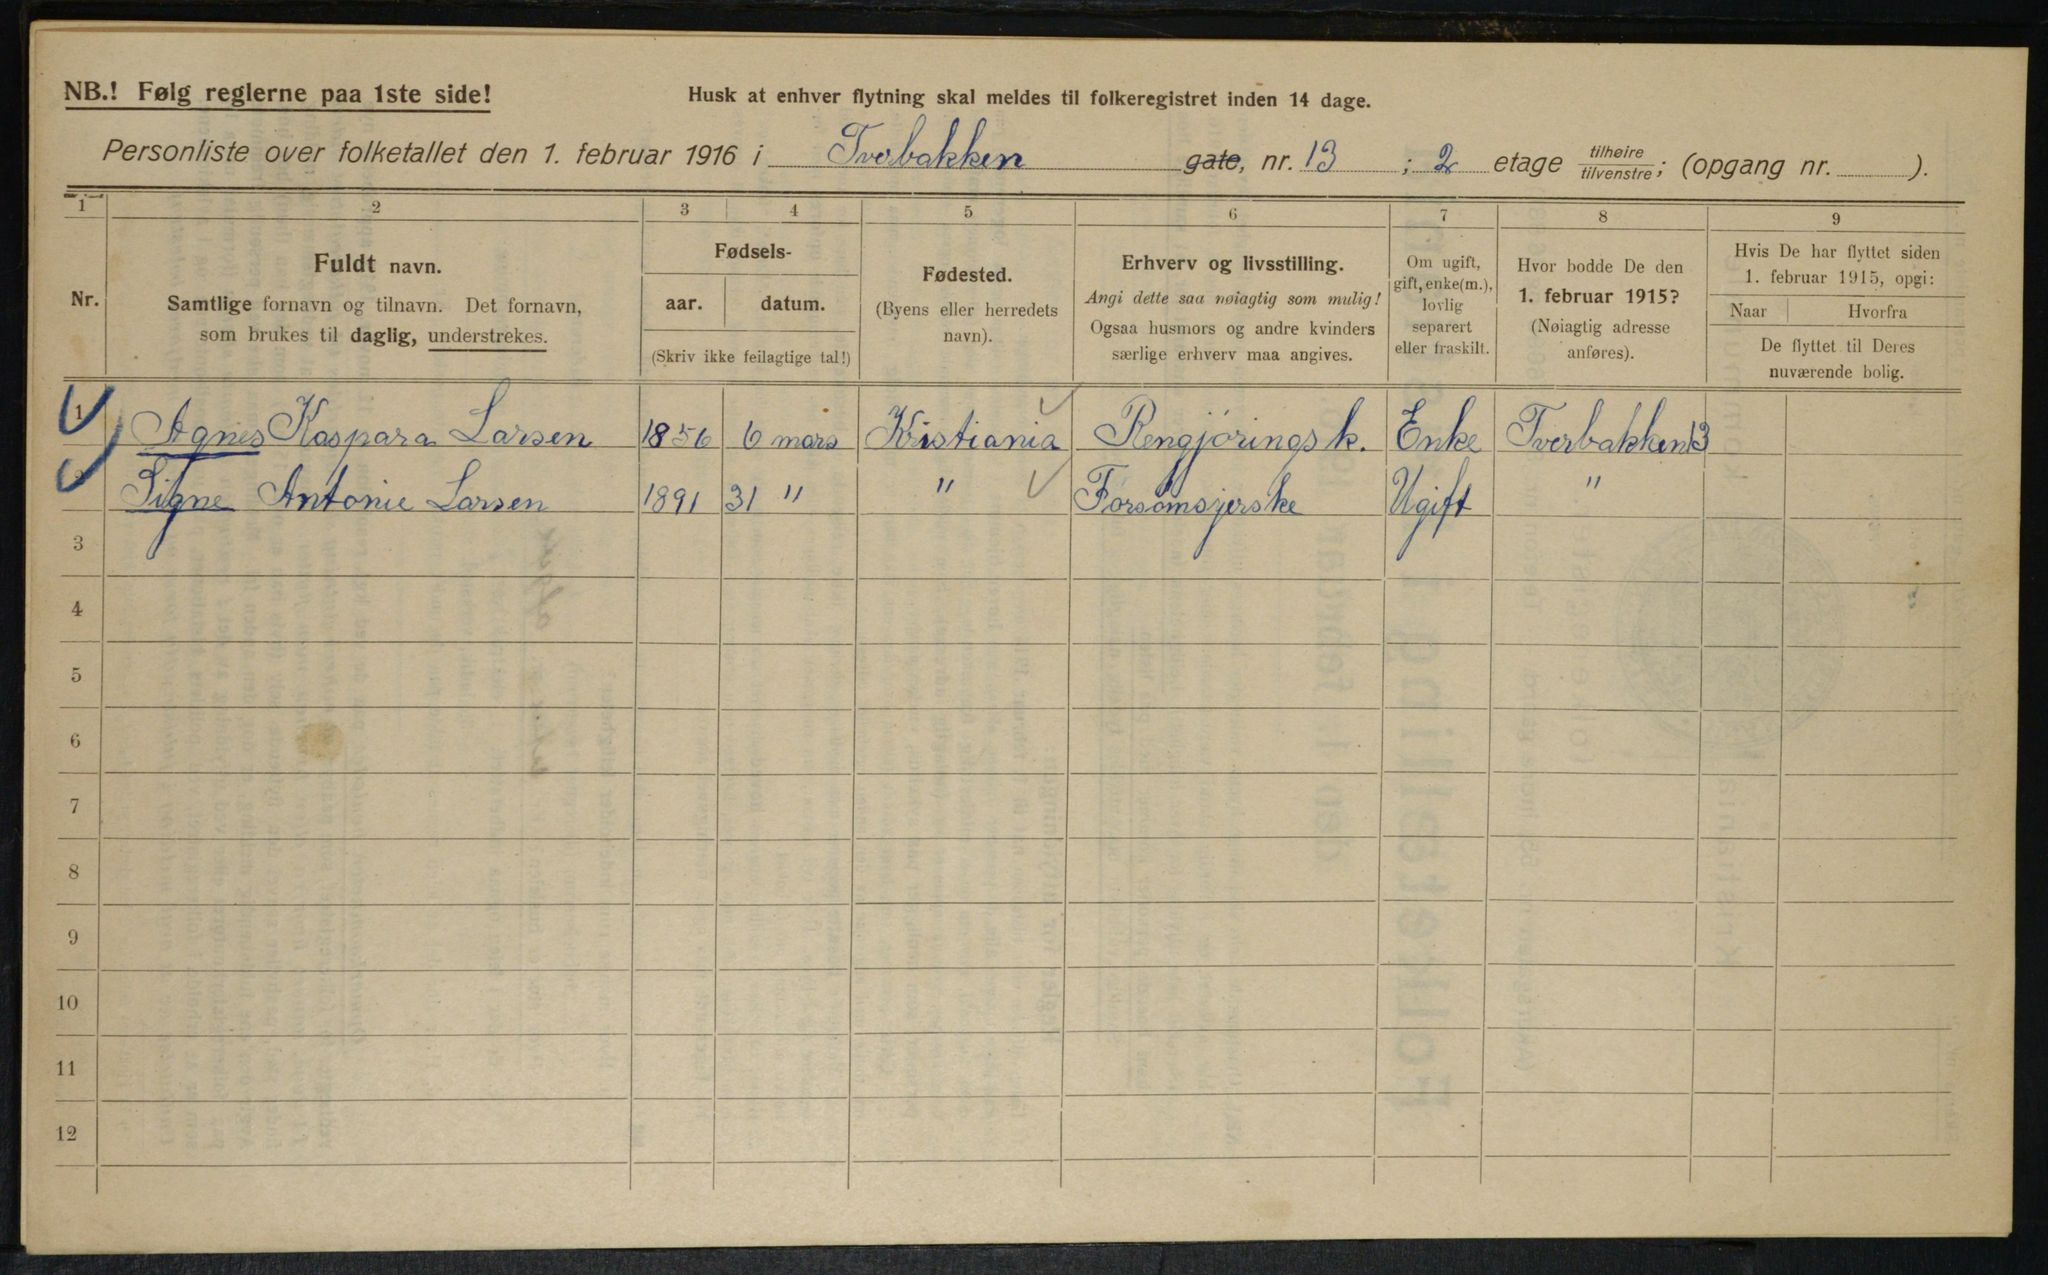 NB.! Følg reglerne paa 1ste side!
Husk at enhver flytning skal meldes til folkeregistret inden 14 dage.
Personliste over folketallet den 1. februar 1916 i Tverbakken gate, nr. 13 ; 2 etage tilhøire tilvenstre ; (opgang nr. ).
1 2 3 4 5 6 7 8 9
Nr.
Fuldt navn.
Samtlige fornavn og tilnavn. Det fornavn,
som brukes til daglig, understrekes.
Fødsels-
aar. datum.
(Skriv ikke feilagtige tal!)
Fødested.
(Byens eller herredets
navn).
Erhverv og livsstilling.
Angi dette saa nøiagtig som mulig!
Ogsaa husmors og andre kvinders
særlige erhverv maa angives.
Om ugift,
gift, enke(m.),
lovlig
separert
eller fraskilt.
Hvor bodde De den
1. februar 1915?
(Nøiagtig adresse
anføres).
Hvis De har flyttet siden
1. februar 1915, opgi:
Naar Hvorfra
De flyttet til Deres
nuværende bolig.
1 Agnes Kaspara Larsen 1856 6 mars Kristiania Rengjøringsk. Enke Tverbakken 13
2 Signe Antonie Larsen 1891 31 " " Forsømsjerske Ugift "
3
4
5
6
7
8
9
10
11
12